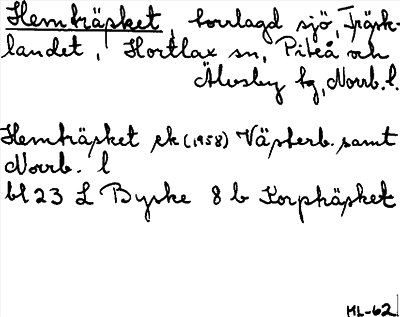 Hemträsket, torrlagd sjö, Träsk-
landet, Hortlax sn, Piteå och
Älvsby kg, Norrb. l.
Hemträsket ek (1958) Västerb. samt
Norrb. l
bl 23 L Byske 8 b Korpträsket
ML-62